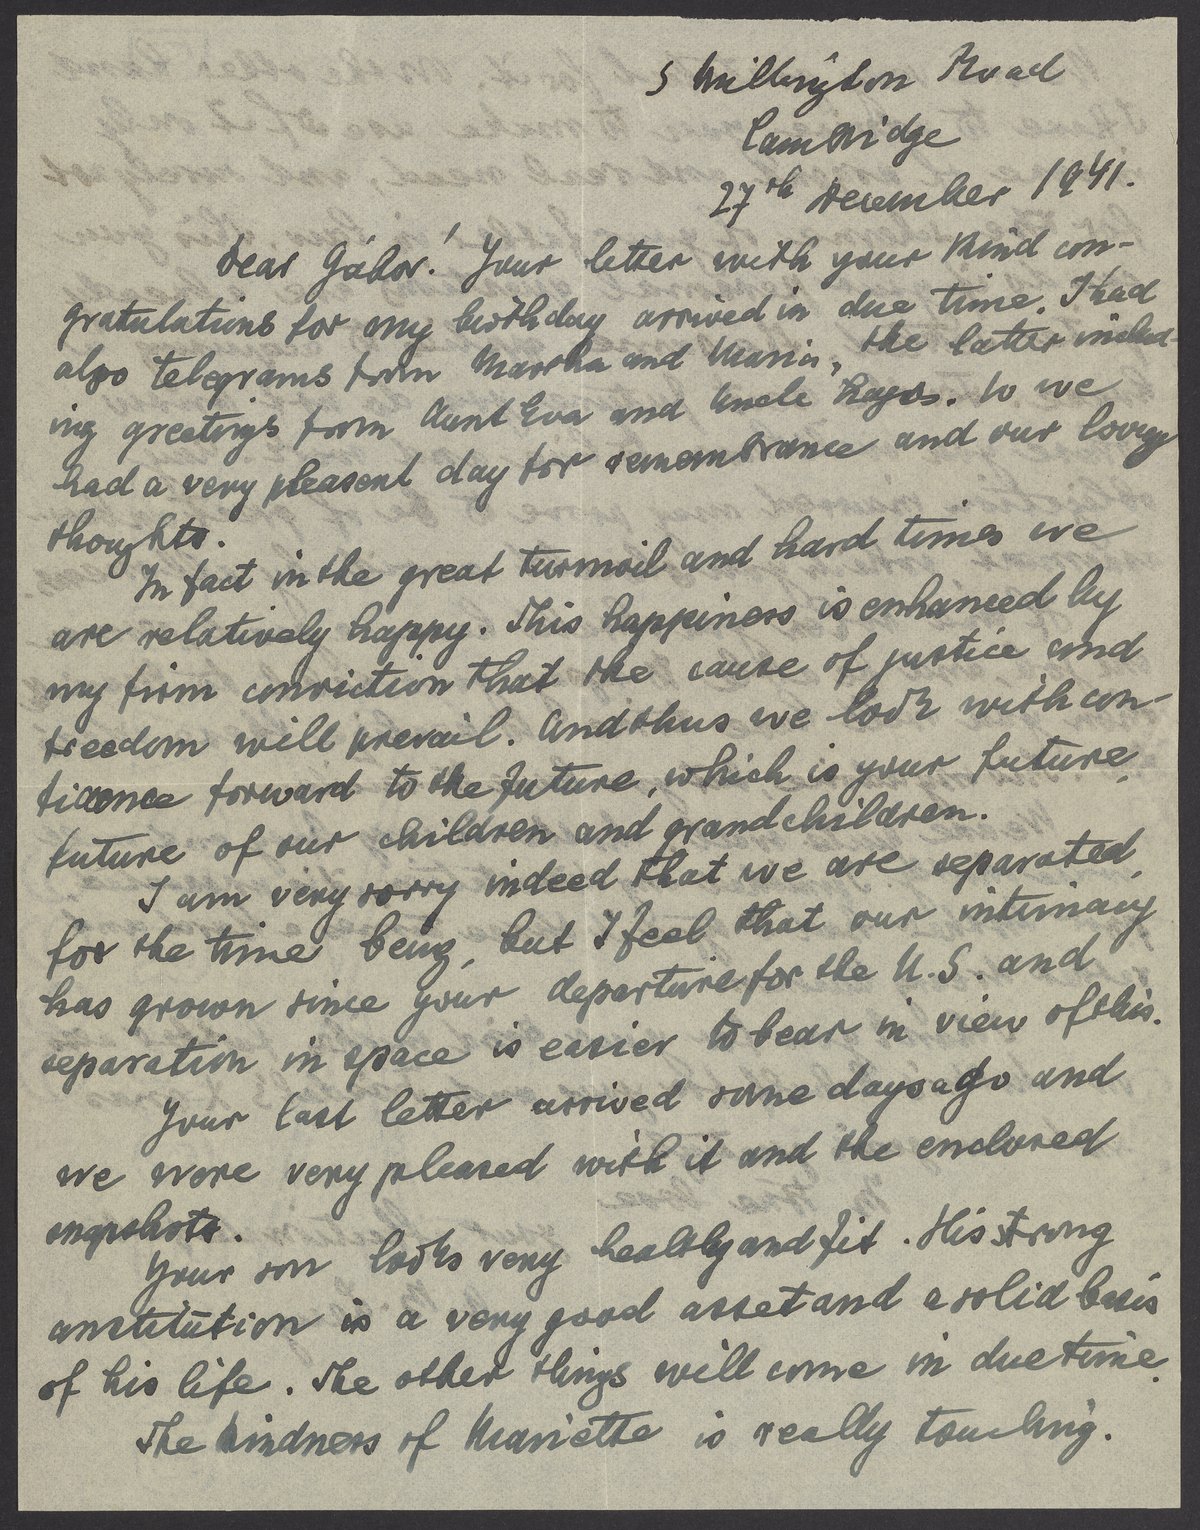 5 Millington Road
Cambridge
27th December 1941.
Dear Gábor! Your letter with your kind con-
gratulations for my birthday arrived in due time. I had
also telegrams from Martha and Maria, the latter includ-
ing greetings from Aunt Eva and Uncle Lajos. So we
had a very pleasent day for remembrance and our loving
thoughts.
In fact in the great turmoil and hard times we
are relatively happy. This happiness is enhanced by
my firm conviction that the cause of justice and
freedom will prevail. And thus we look with con-
fidence forward to the future, which is your future,
future of our children and grandchildren.
I am very sorry indeed that we are separated
for the time being, but I feel that our intimacy
has grown since your departure for the U.S. and
separation in space is easier to bear in view of this.
Your last letter arrived some days ago and
we were very pleased with it and the enclosed
snapshots.
Your son looks very healthy and fit. His strong
constitution is a very good asset and a solid basis
of his life. The other things will come in due time.
The kindness of Mariette is really touching.